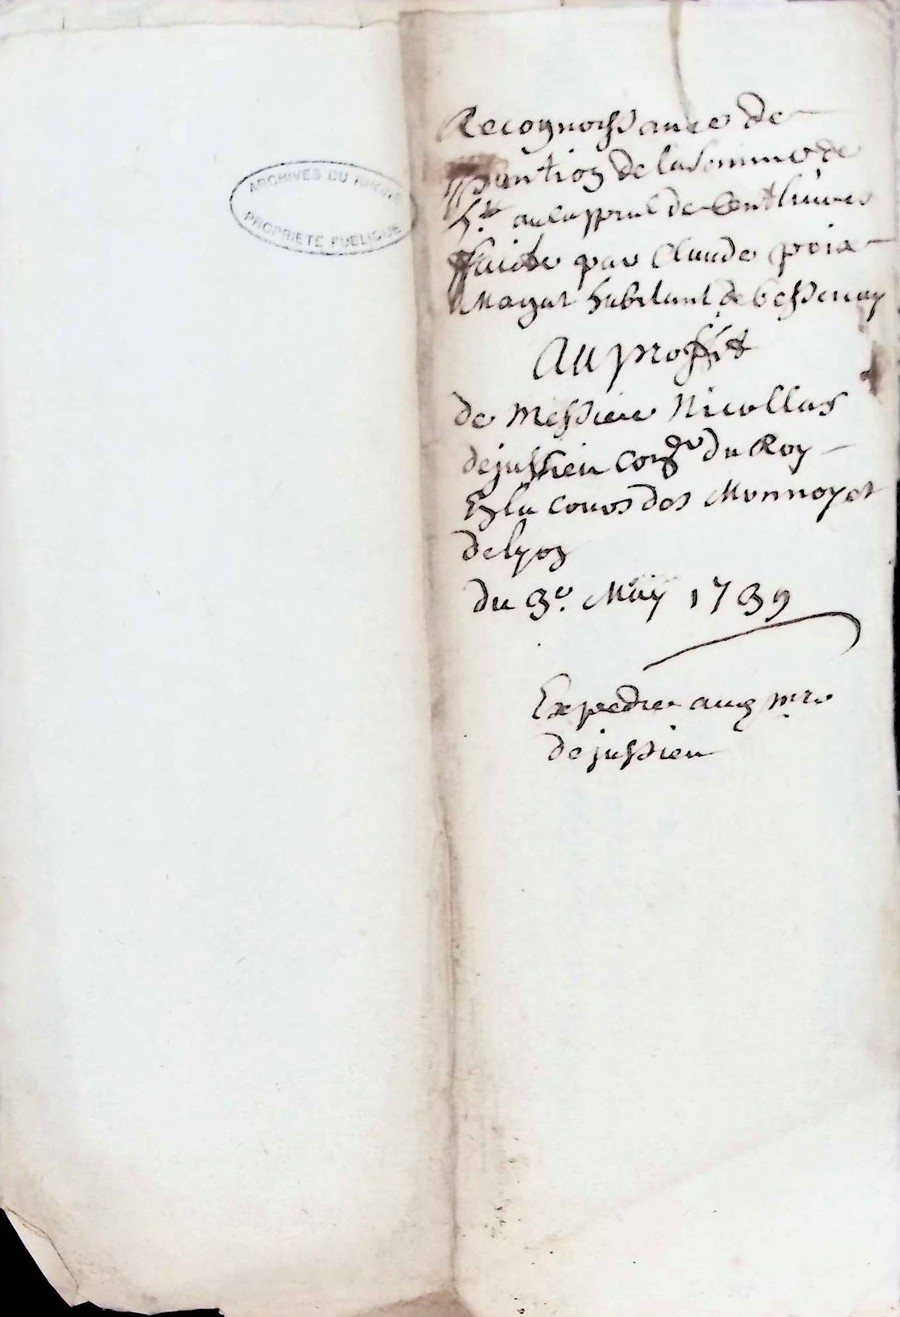 ARCHIVES DU RHÔNE
PROPRIÉTÉ PUBLIQUE
Recognoissance de
pention de la somme de
5.ᵗᵗ au cappital de Cent livres
faicte par Claude poix
Magat habitant de bessenay
Au proffit
de Messire Nicollas
dejussieu con.ᵉʳ du Roy
En la cour des Monnoyes
de lyon
du 3.ᵉ May 1739
Expedier aud mre
de jussieu